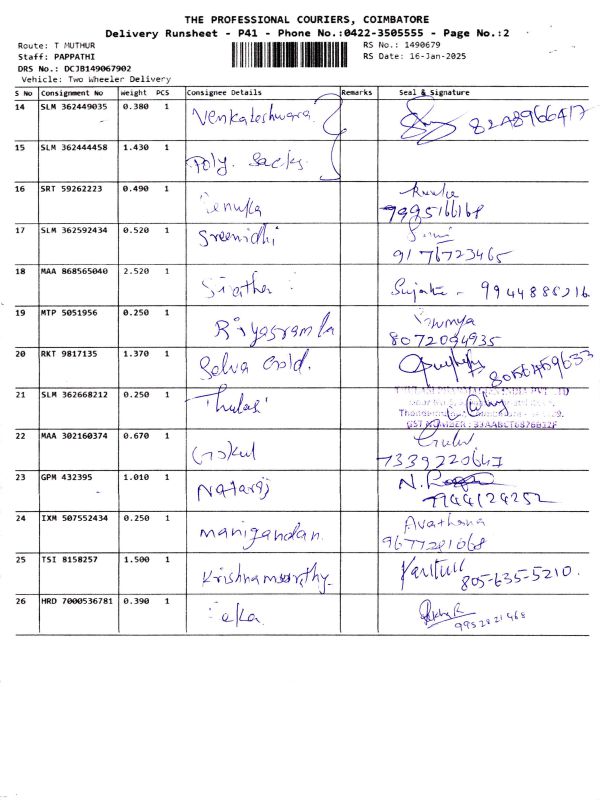 THE PROFESSIONAL COURIERS, COIMBATORE
Delivery Runsheet - P41 - Phone No.:0422-3505555 - Page No.:2
Route: T MUTHUR RS No.: 1490679
Staff: PAPPATHI RS Date: 16-Jan-2025
DRS No.: DCJB149067902
Vehicle: Two Wheeler Delivery
S No Consignment No Weight PCS Consignee Details Remarks Seal & Signature
14 SLM 362449035 0.380 1 Venkateshwara 8248966417
15 SLM 362444458 1.430 1 Poly Sacks
16 SRT 59262223 0.490 1 Renuka
7995166168
17 SLM 362592434 0.520 1 Sreenidhi
9176723465
18 MAA 868565040 2.520 1 Sujatha - 9944886216
19 MTP 5051956 0.250 1 Sowmya
8072094935
20 RKT 9817135 1.370 1 Selva Gold.
21 SLM 362668212 0.250 1 Thulasi
22 MAA 302160374 0.670 1 Gokul
7339220647
23 GPM 432395 1.010 1 Nataraj
7944124252
24 IXM 507552434 0.250 1 Manigandan.
9677281068
25 TSI 8158257 1.500 1 Krishnamoorthy
805-635-5210.
26 HRD 7000536781 0.390 1
9952821468